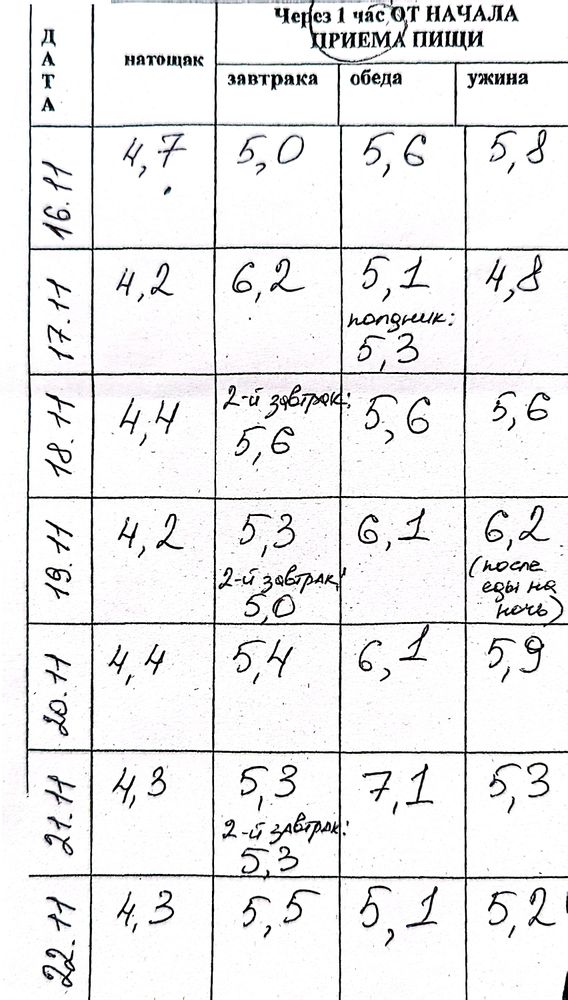 Через 1 час ОТ НАЧАЛА
ПРИЕМА ПИЩИ
ДАТА
натощак
завтрака
обеда
ужина
16.11 4,7 5,0 5,6 5,8
17.11 4,2 6,2 5,1 4,8
полдник:
5,3
18.11 4,4 2-й завтрак: 5,6 5,6
5,6
19.11 4,2 5,3 6,1 6,2
2-й завтрак: (после
5,0 еды на
ночь)
20.11 4,4 5,4 6,1 5,9
21.11 4,3 5,3 7,1 5,3
2-й завтрак:
5,3
22.11 4,3 5,5 5,1 5,2